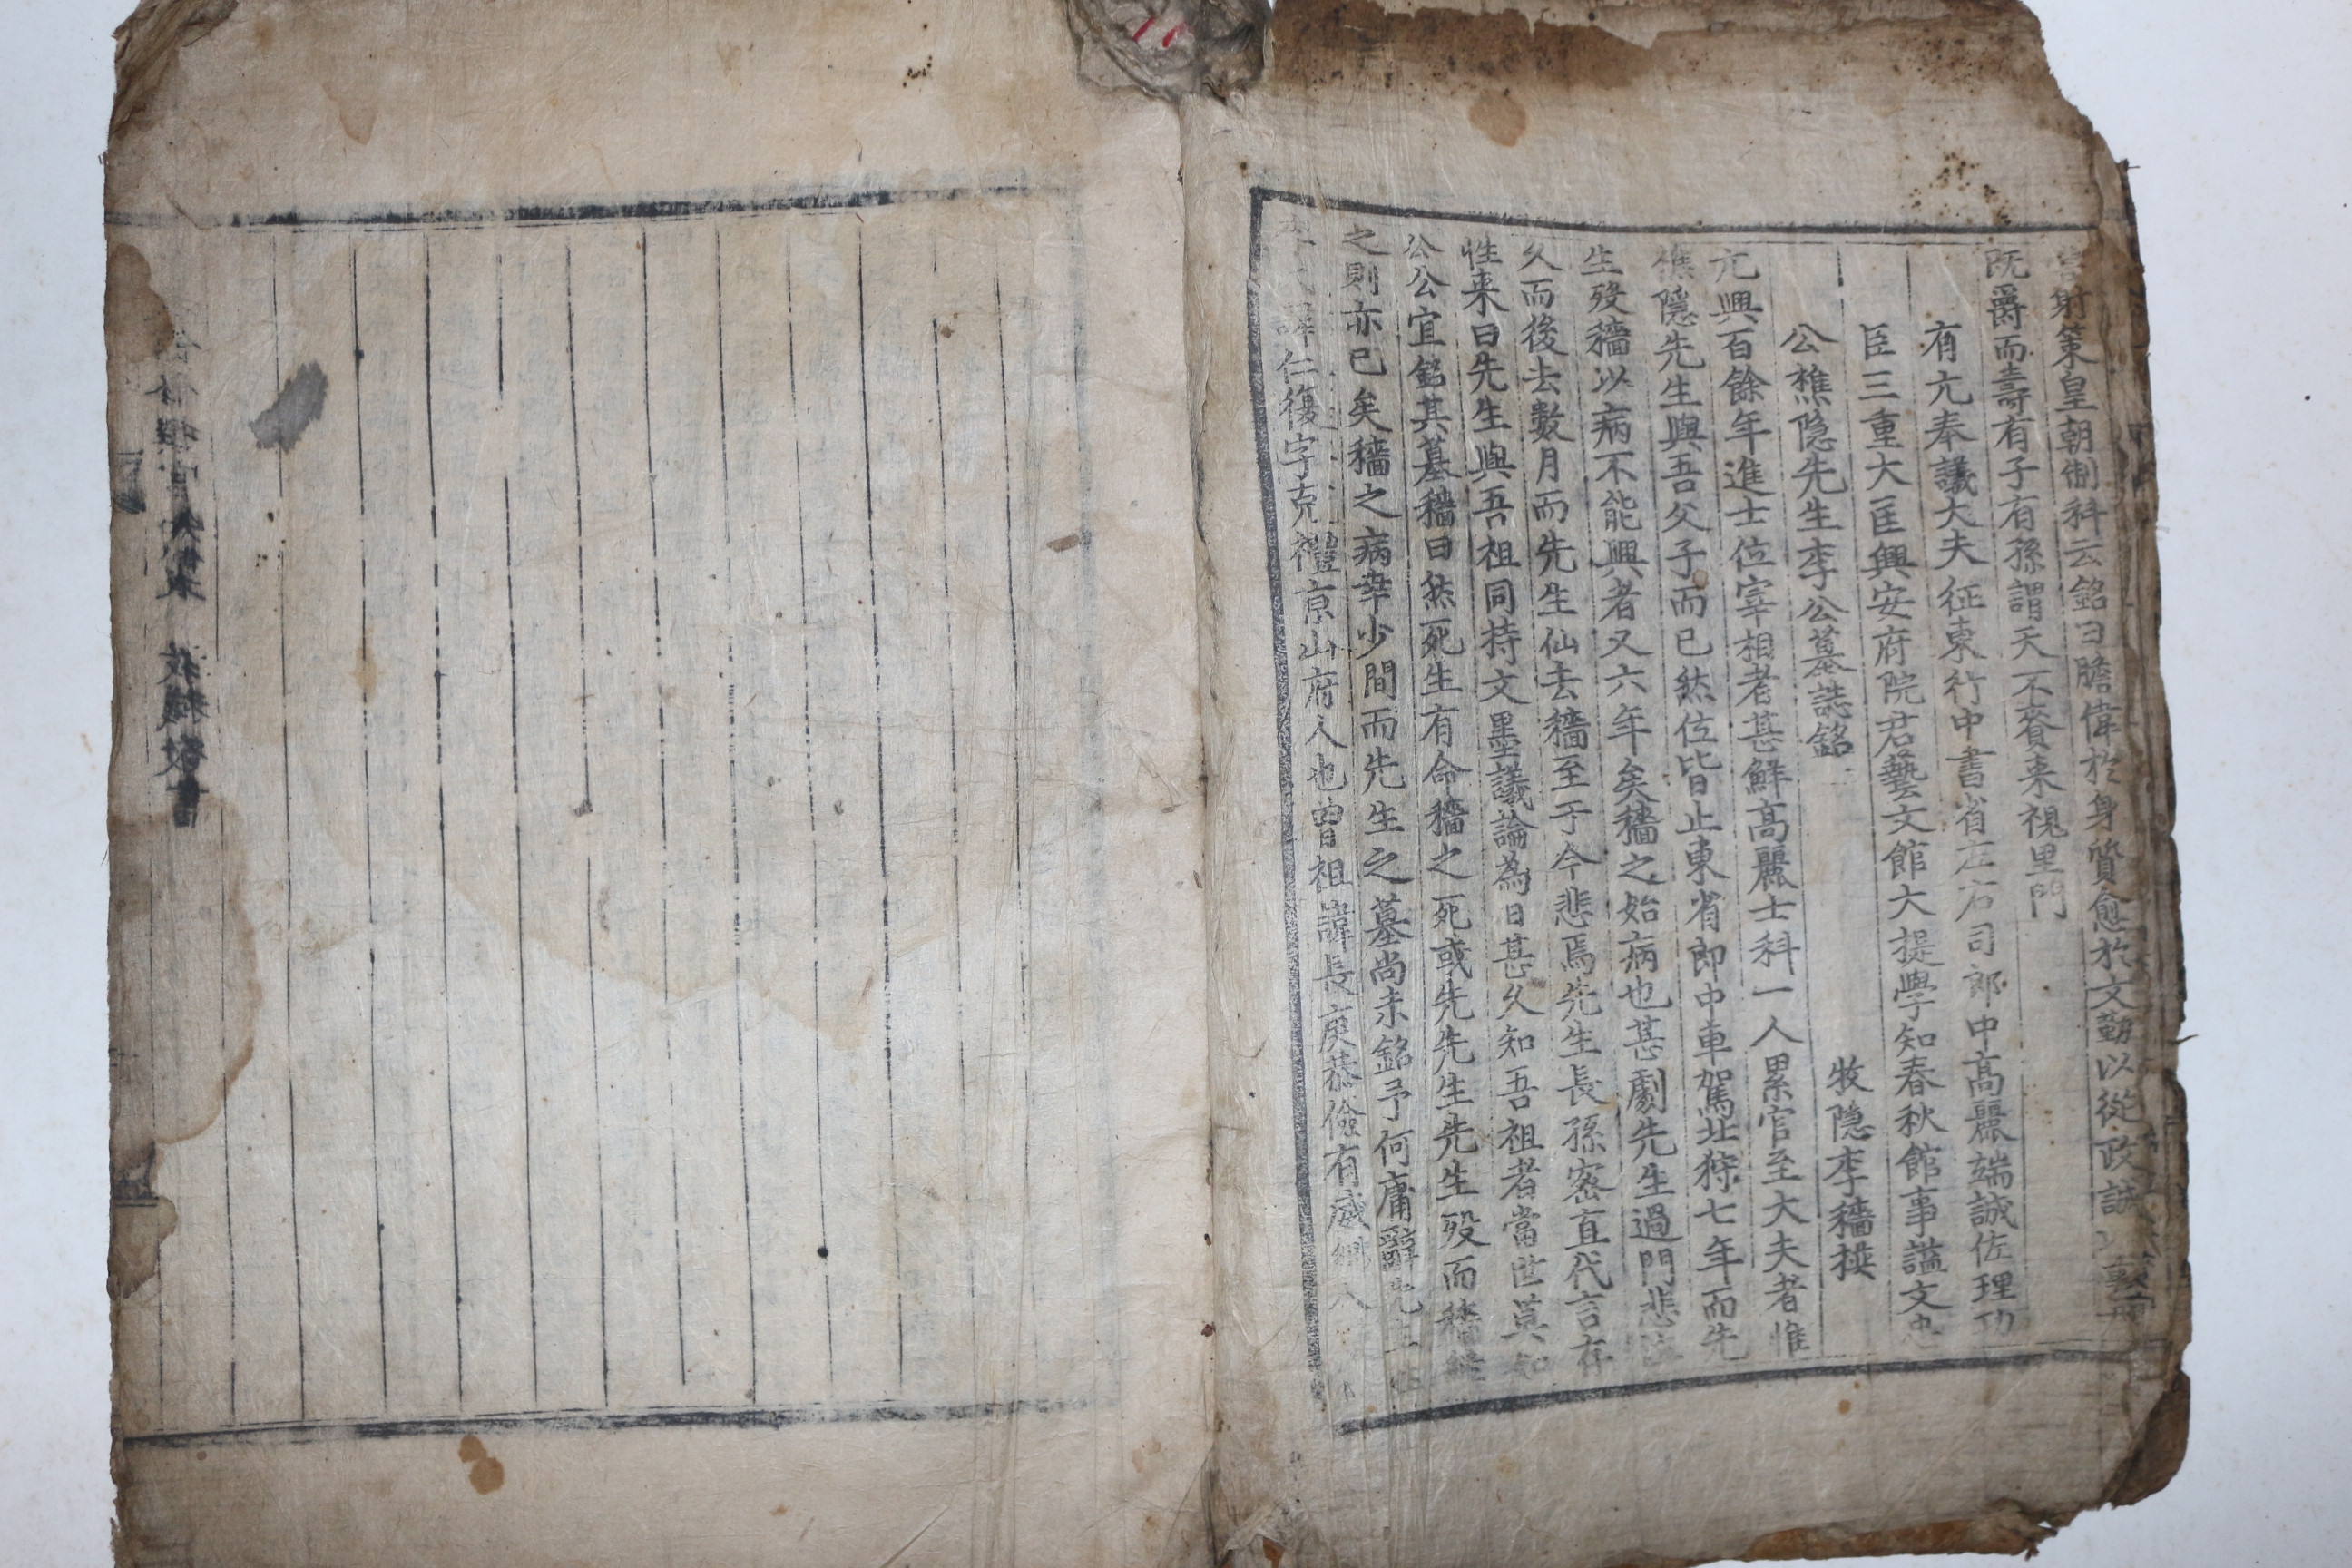 射策皇朝制科云銘曰膽偉於身質愈於文勤以從政誠
既爵而壽有子有孫謂天不賚來視里門
有元奉議大夫征東行中書省左右司郎中高麗端誠佐理功
臣三重大匡興安府院君藝文館大提學知春秋館事謚文忠
公樵隱先生李公墓誌銘 牧隱李穡撰
元興百餘年進士位宰相者甚鮮高麗士科一人累官至大夫者惟
樵隱先生與吾父子而已然位皆止東省郎中車駕北狩七年而先
生歿穡以病不能興者又六年矣穡之始病也甚劇先生過門悲泣
久而後去數月而先生仙去穡至于今悲焉先生長孫密直代言存
性来曰先生與吾祖同持文墨議論為日甚久知吾祖者當世莫如
公公宜銘其墓穡曰然死生有命穡之死或先先生先生歿而穡
之則亦已矣穡之病幸少間而先生之墓尚未銘予何庸辭先生
李氏諱仁復字克禮京山府人也曾祖諱長庚恭儉有威鄉人